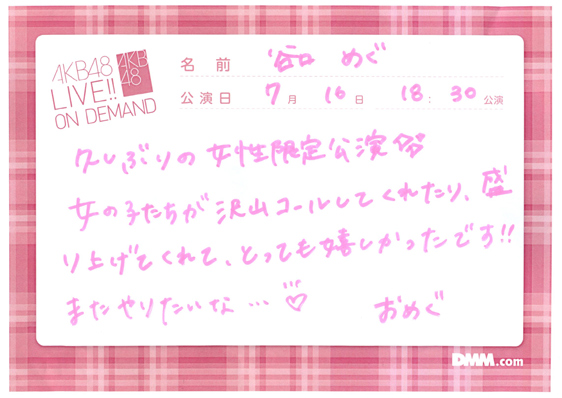 AKB48
LIVE!!
ON DEMAND
AKB
48
名 前 谷口 めぐ
公演日 7月 16日 18:30公演
久しぶりの女性限定公演
女の子たちが沢山コールしてくれたり、盛
り上げてくれて、とっても嬉しかったです!!
またやりたいな…♡ おめぐ
DMM.com